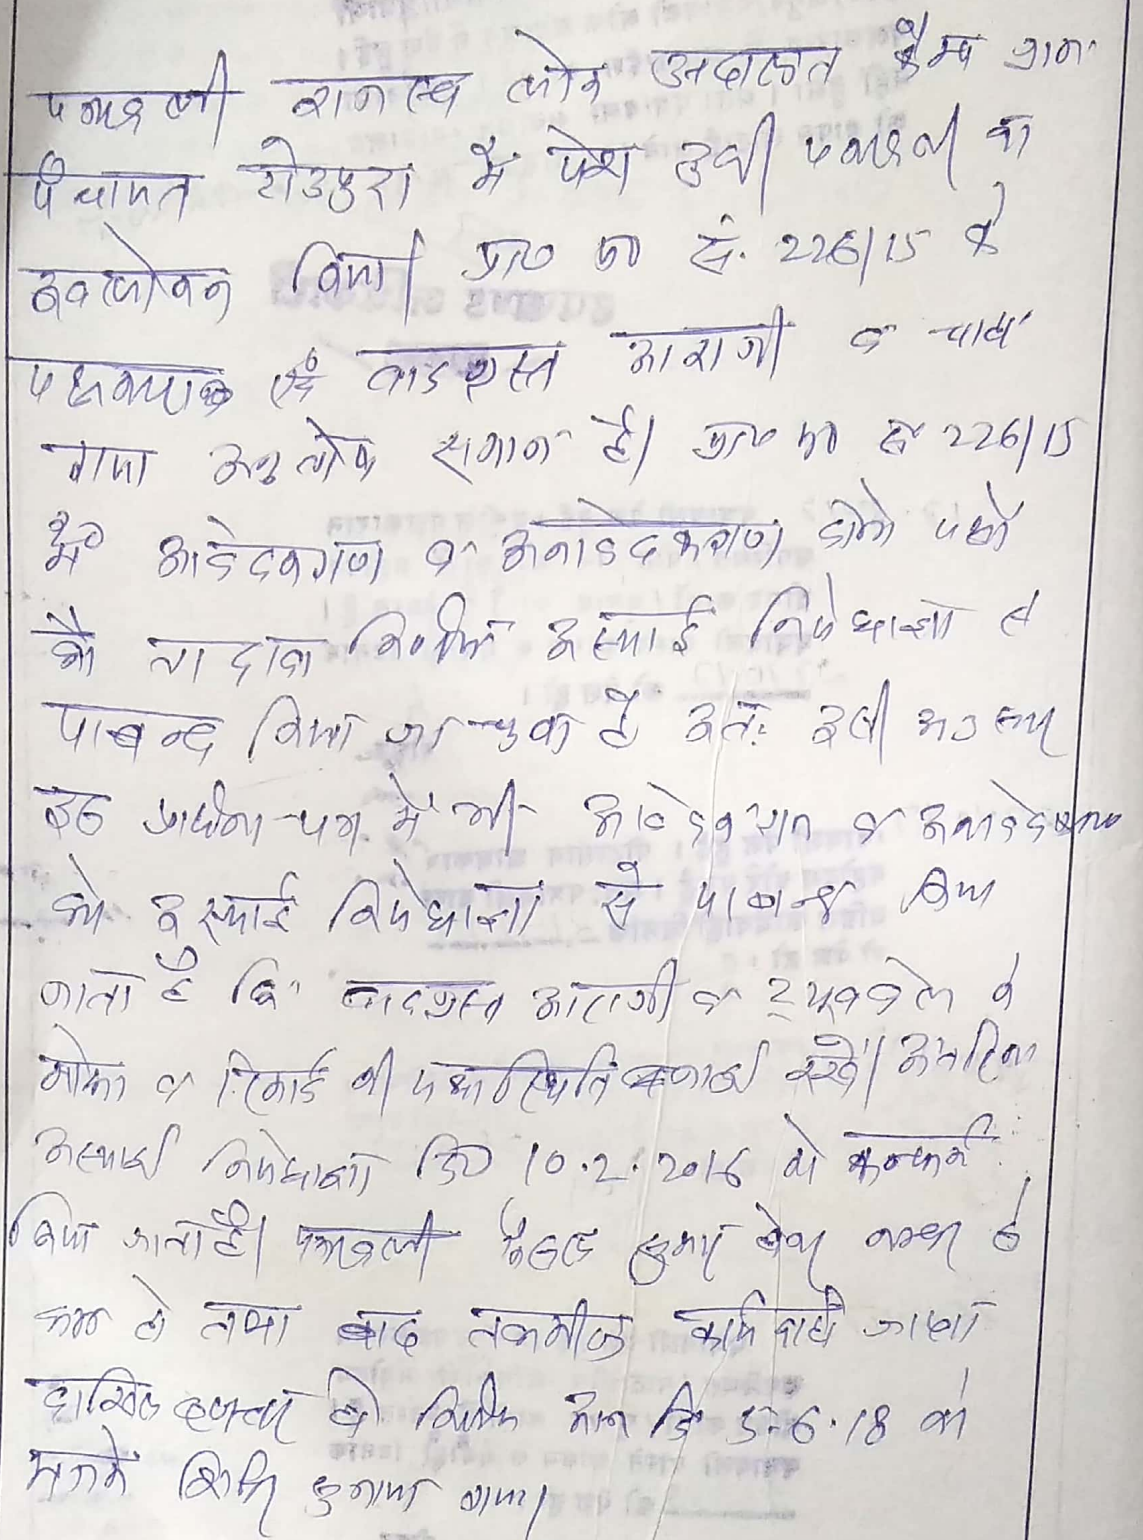 पत्रावली राजस्व लोक अदालत कैम्प ग्राम
पंचायत में पेश हुयी पत्रावली का
अवलोकन किया। प्रा० प० सं. 226/15 के
पक्षकारान एवं वादग्रस्त आराजी व चाहा
गया अनुतोष समान है। प्रा० प० सं 226/15
में आवेदकगण व अनावेदकगण दोनो पक्षों
को तादावा निर्णय अस्थाई निषेधाज्ञा से
पाबन्द किया जा चुका है अतः इसी
इस प्रार्थना पत्र में भी आवेदकगण व अनावेदकगण
को अस्थाई निषेधाज्ञा से पाबन्द किया
जाता है कि वादग्रस्त आराजी व के
मौका व रिकार्ड की यथास्थिति बनाये रखे। अंतरिम
अस्थाई निषेधाज्ञा दि० 10.2.2016 को कन्फर्म
किया जाता है। पत्रावली फैसल शुमार होकर नम्बर से
कम हो तथा बाद तकमील कार्यवाही जाप्ता
दाखिल दफ्तर हो निर्णय आज दि 5.6.18 को
सुनाया गया।